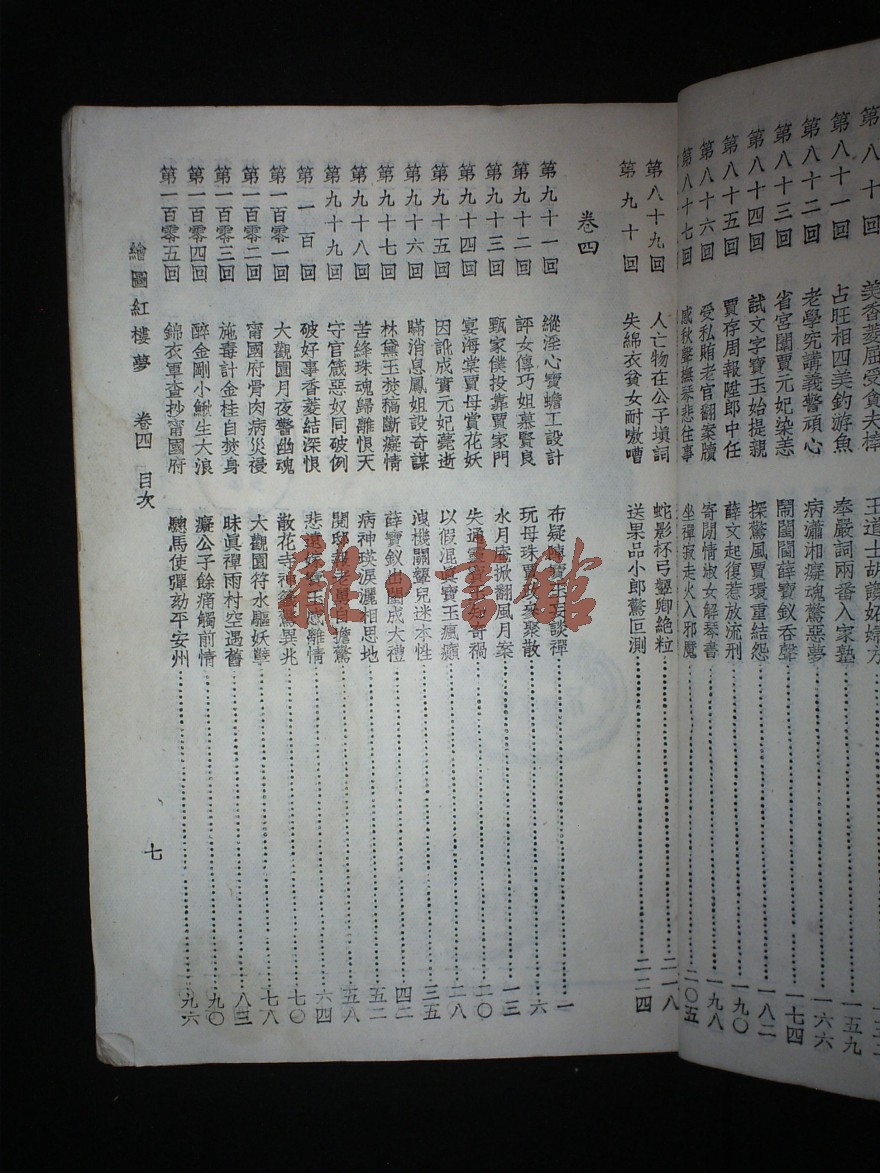 第八十回 美香菱屈受貪夫棒 王道士胡謅妬婦方
第八十一回 占旺相四美釣游魚 奉嚴詞兩番入家塾 一五九
第八十二回 老學究講義警頑心 病瀟湘癡魂驚惡夢 一六六
第八十三回 省宮闈賈元妃染恙 鬧閨閫薛寶釵吞聲 一七四
第八十四回 試文字寶玉始提親 探驚風賈環重結怨 一八二
第八十五回 賈存周報陞郎中任 薛文起復惹放流刑 一九〇
第八十六回 受私賄老官翻案牘 寄閒情淑女解琴書 一九八
第八十七回 感秋聲撫琴悲往事 坐禪寂走火入邪魔 二〇五
第八十九回 人亡物在公子塡詞 蛇影杯弓顰卿絶粒 二一八
第九十回 失綿衣貧女耐嗷嘈 送果品小郎驚叵測 二二四
卷四
第九十一回 縱淫心寶蟾工設計 布疑陣寶玉妄談禪 一
第九十二回 評女傳巧姐慕賢良 玩母珠賈政參聚散 六
第九十三回 甄家僕投靠賈家門 水月庵掀翻風月案 一三
第九十四回 宴海棠賈母賞花妖 失通靈寶玉知奇禍 二〇
第九十五回 因訛成實元妃薨逝 以假混眞寶玉瘋癲 二八
第九十六回 瞞消息鳳姐設奇謀 洩機關顰兒迷本性 三五
第九十七回 林黛玉焚稿斷癡情 薛寶釵出閨成大禮 四二
第九十八回 苦絳珠魂歸離恨天 病神瑛淚灑相思地 五二
第九十九回 守官箴惡奴同破例 閱邸報老舅自擔驚 五八
第一百回 破好事香菱結深恨 悲遠嫁寶玉感離情 六四
第一百零一回 大觀園月夜警幽魂 散花寺神籤驚異兆 七〇
第一百零二回 甯國府骨肉病災祲 大觀園符水驅妖孽 七八
第一百零三回 施毒計金桂自焚身 昧眞禪雨村空遇舊 八三
第一百零四回 醉金剛小鰍生大浪 癡公子餘痛觸前情 九〇
第一百零五回 錦衣軍查抄甯國府 驄馬使彈劾平安州 九六
繪圖紅樓夢 卷四 目次 七
雜·書館